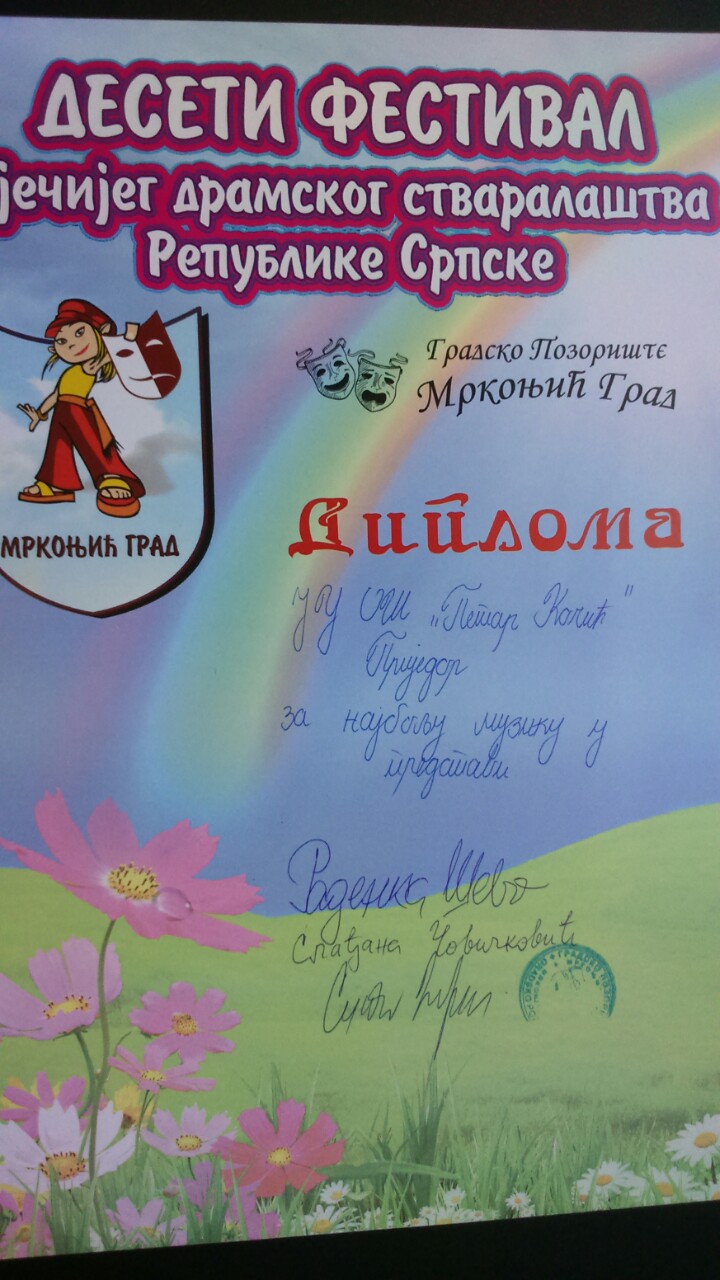 ДЕСЕТИ ФЕСТИВАЛ
јечијег драмског стваралаштва
Републике Српске
Градско Позориште
Мркоњић Град
МРКОЊИЋ ГРАД
Диплома
ЈУ ОШ „Петар Кочић"
Приједор
за најбољу музику у
представи
Раденка Шево
Слађана Јовичковић